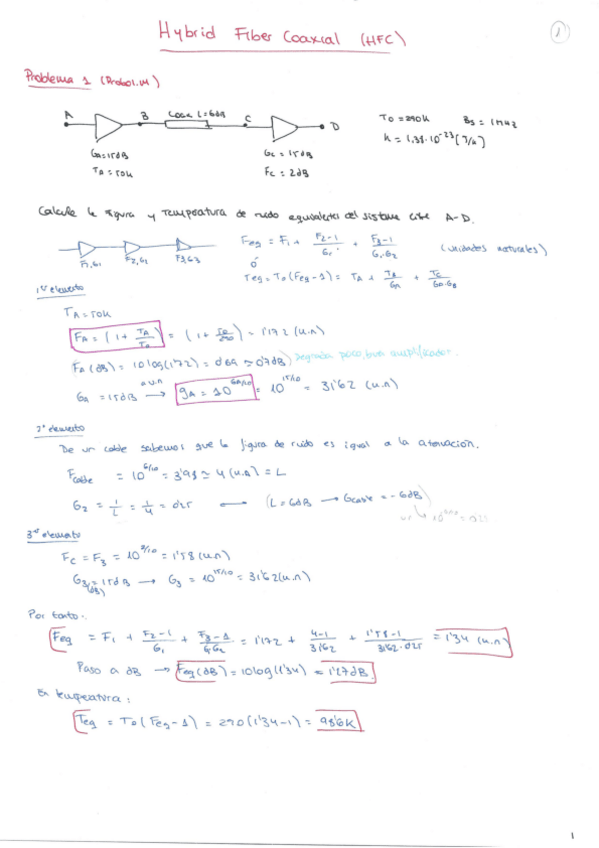 Hybrid Fiber Coaxial (HFC)
1
Problema 1 (Probo1.m)
A B Coax L=6dB C D
To = 290K Bs = 1MHz
k = 1,38·10^-23 [J/K]
Ga=15dB Gc = 15dB
TA = 50K Fc = 2dB
Calcule la figura y temperatura de ruido equivalentes del sistema entre A-D.
F1,G1 F2,G2 F3,G3
Feq = F1 + (F2-1)/G1 + (F3-1)/(G1·G2) (unidades naturales)
ó
Teq = To(Feq-1) = TA + TB/GA + TC/(GA·GB)
1er elemento
TA = 50K
FA = (1 + TA/To) = (1 + 50/290) = 1'172 (u.n)
FA(dB) = 10log(1'172) = 0'69 ≈ 0'7dB) poco, buen amplificador.
Ga = 15dB a u.n → gA = 10^(GA/10) = 10^(15/10) = 31'62 (u.n)
2º elemento
De un cable sabemos que la figura de ruido es igual a la atenuación.
Fcable = 10^(6/10) = 3'98 ≈ 4 (u.n) = L
G2 = 1/L = 1/4 = 0'25 ← (L = 6dB → Gcable = -6dB)
3er elemento
Fc = F3 = 10^(2/10) = 1'58 (u.n)
G3 = 15dB → G3 = 10^(15/10) = 31'62 (u.n)
(dB)
Por tanto:
Feq = F1 + (F2-1)/G1 + (F3-1)/(G1G2) = 1'172 + (4-1)/31'62 + (1'58-1)/(31'62·0'25) = 1'34 (u.n)
Paso a dB → Feq(dB) = 10log(1'34) = 1'27dB.
En temperatura:
Teq = To(Feq-1) = 290(1'34-1) = 98'6K
1